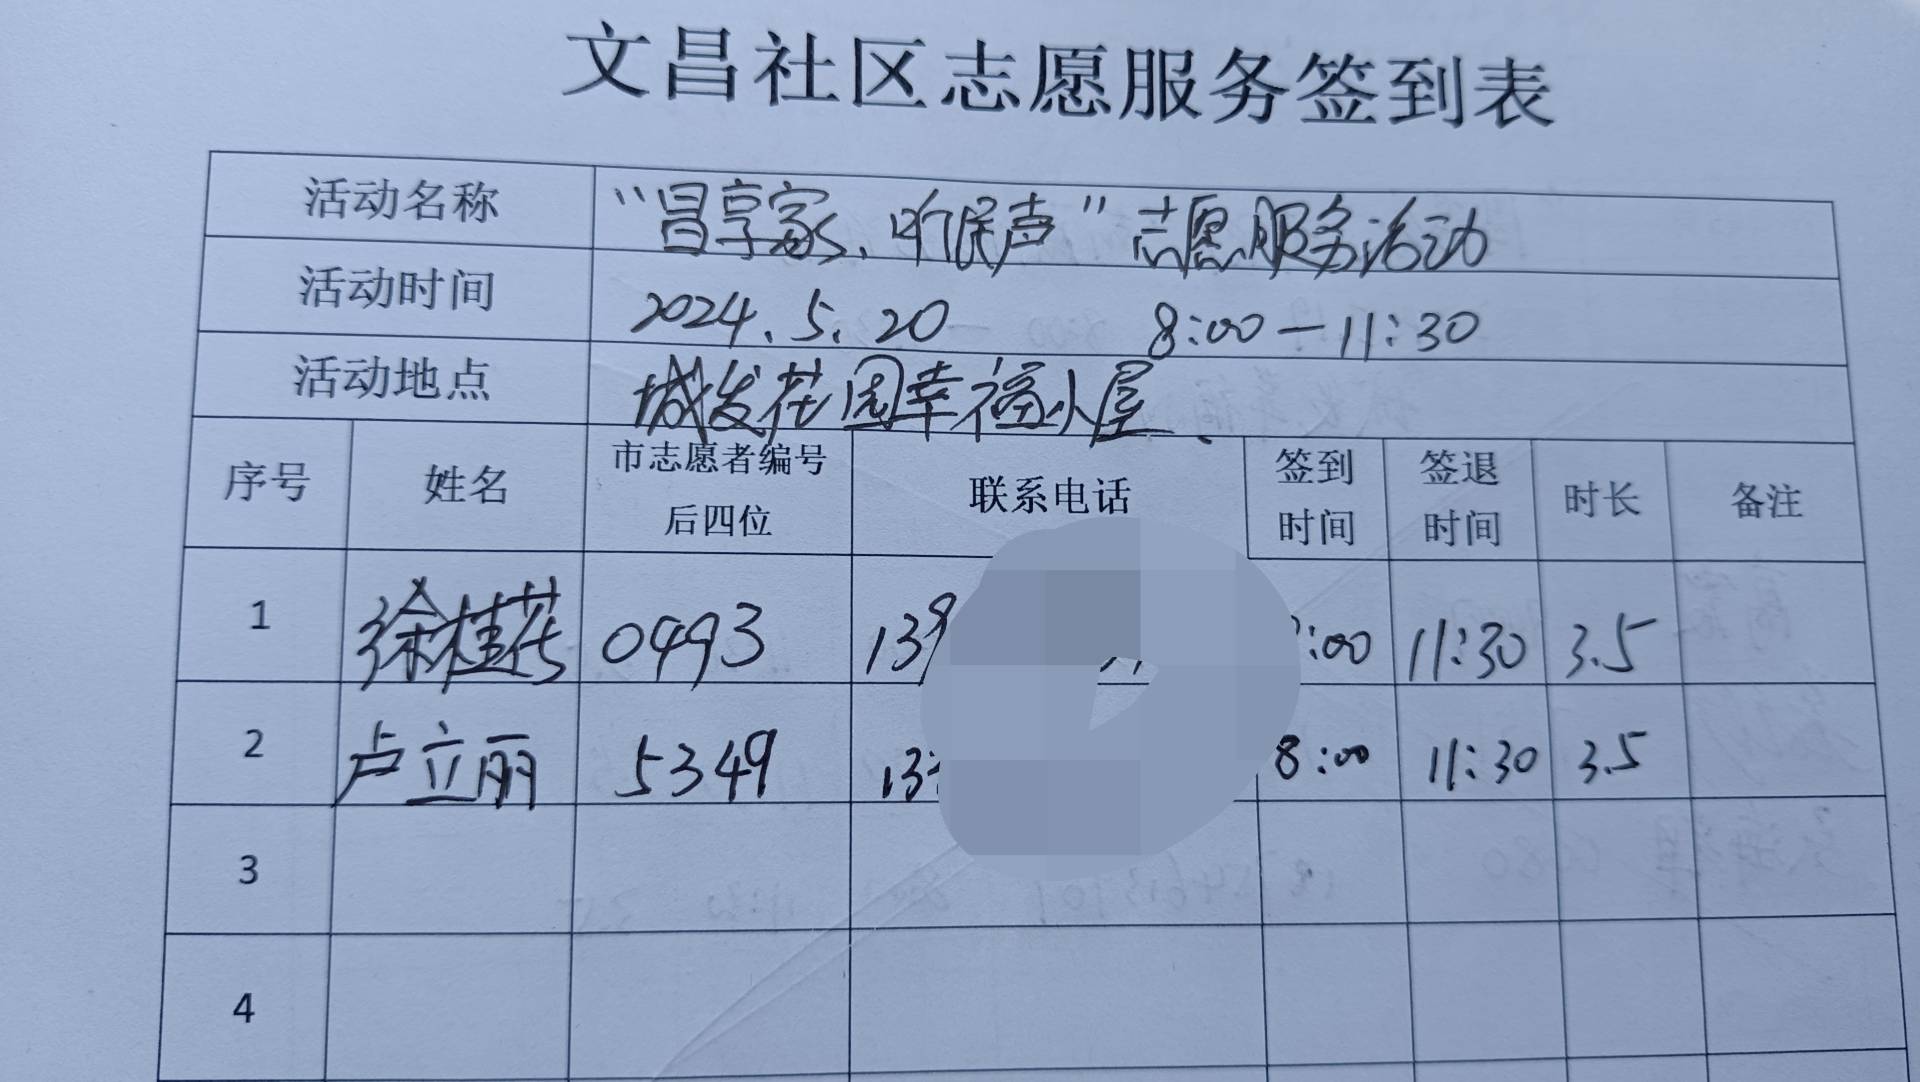 文昌社区志愿服务签到表
活动名称 “昌享家、听民声”志愿服务活动
活动时间 2024.5.20 8:00—11:30
活动地点 城发花园幸福小屋
序号 姓名 市志愿者编号后四位 联系电话 签到时间 签退时间 时长 备注
1 徐桂花 0493 139 :00 11:30 3.5
2 卢立丽 5349 13 8:00 11:30 3.5
3
4